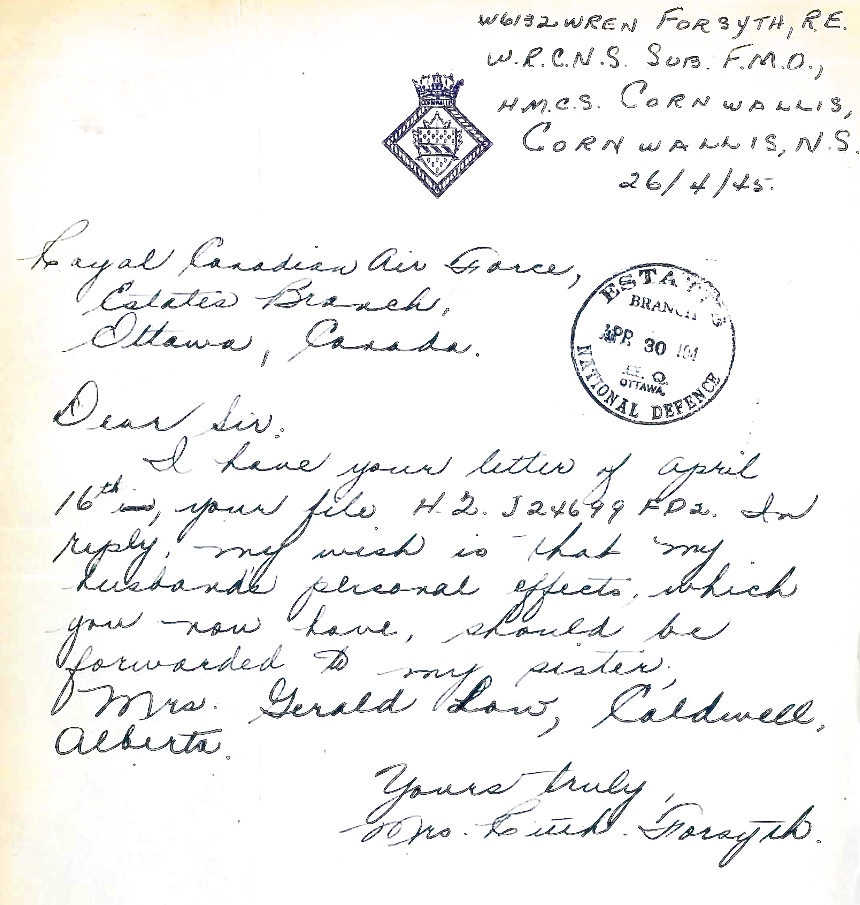 W6132 WREN FORSYTH, R.E.
W.R.C.N.S. SUB. F.M.O.,
H.M.C.S. CORNWALLIS,
CORNWALLIS, N.S.
26/4/45.
CORNWALLIS
Royal Canadian Air Force,
Estates Branch,
Ottawa, Canada.
ESTATES
BRANCH
APR 30 194
H.Q.
OTTAWA
NATIONAL DEFENCE
Dear Sir.
I have your letter of April
16th, your file H.Q. J24699 FD2. In
reply, my wish is that my
husbands personal effects, which
you now have, should be
forwarded to my sister,
Mrs. Gerald Low, Caldwell,
Alberta.
Yours truly,
Mrs. Ruth Forsyth.